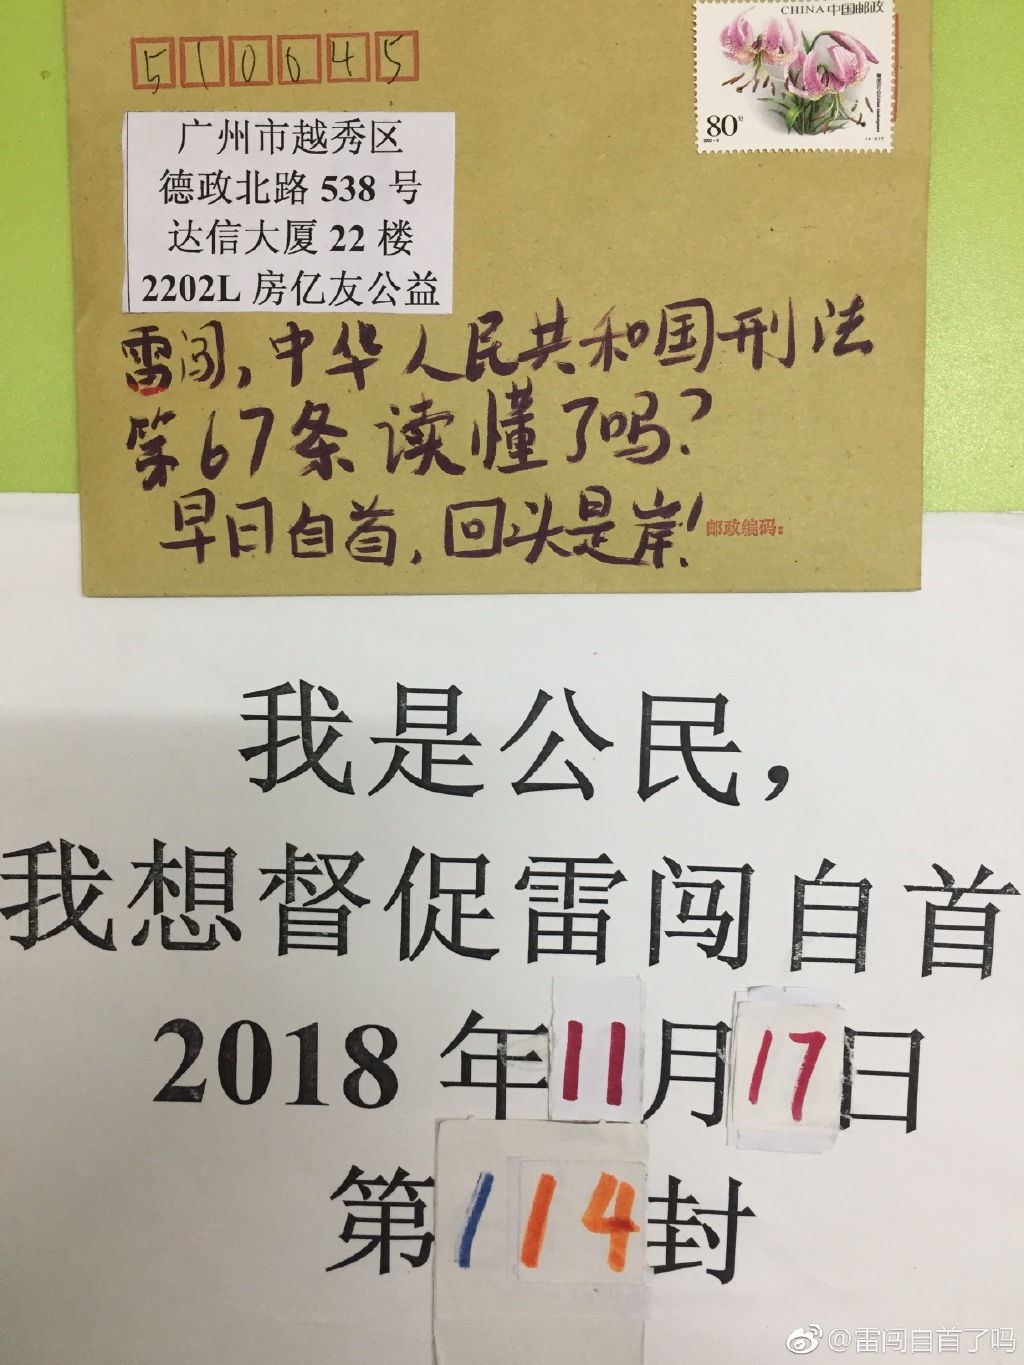 510645
CHINA 中国邮政
80分
广州市越秀区
德政北路 538 号
达信大厦 22 楼
2202L 房亿友公益
雷闯,中华人民共和国刑法
第67条读懂了吗?
早日自首,回头是岸!
邮政编码:
我是公民,
我想督促雷闯自首
2018 年11月17日
第114封
@雷闯自首了吗